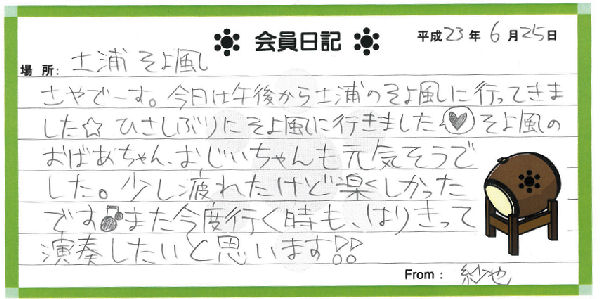 会員日記
平成23年6月25日
場所: 土浦 そよ風
さやでーす。今日は午後から土浦のそよ風に行ってきま
した☆ ひさしぶりにそよ風に行きました♥そよ風の
おばあちゃん、おじいちゃんも元気そうで
した。少し疲れたけど楽しかった
です♪また今度行く時も、はりきって
演奏したいと思います!!
From: 紗也